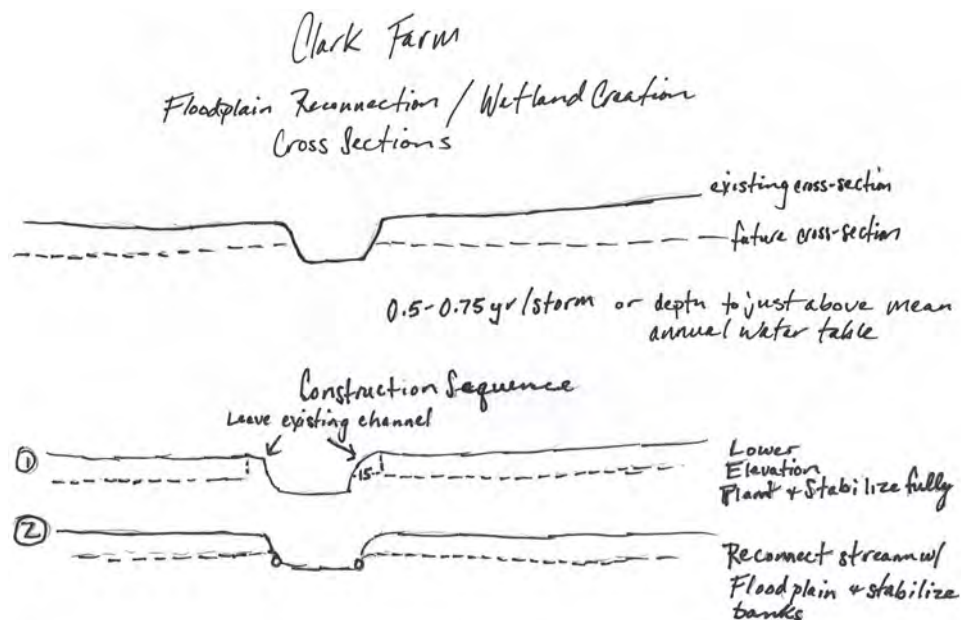 Clark Farm
Floodplain Reconnection / Wetland Creation
Cross Sections
existing cross-section
future cross-section
0.5-0.75 yr/storm or depth to just above mean
annual water table
Construction Sequence
Leave existing channel
1
15
Lower
Elevation
Plant & Stabilize fully
2
Reconnect stream w/
Floodplain & stabilize
banks